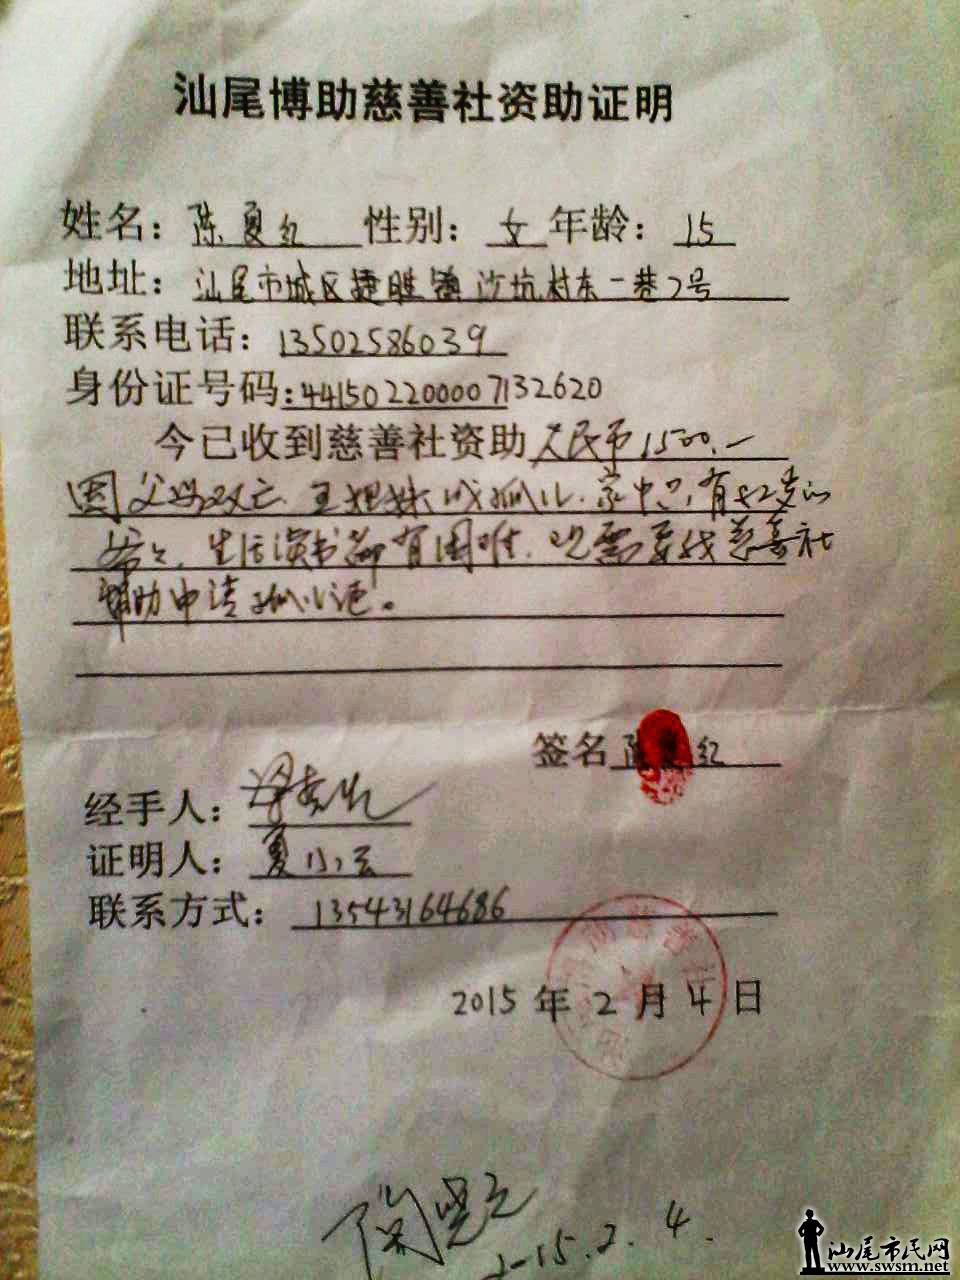 汕尾博助慈善社资助证明
姓名：陈夏红 性别：女 年龄：15
地址：汕尾市城区捷胜镇沙坑村东一巷2号
联系电话：13502586039
身份证号码：441502200007132620
今已收到慈善社资助人民币1500.—
因父母双亡、三姐妹成孤儿、家中只有82岁的
爷爷、生活读书都有困难、现需要找慈善社
辅助申请孤儿证。
签名 陈夏红
经手人：
证明人：夏小云
联系方式：13543164686
慈善社
2015 年 2 月 4 日
2-15.2.4.
汕尾市民网
www.swsm.net